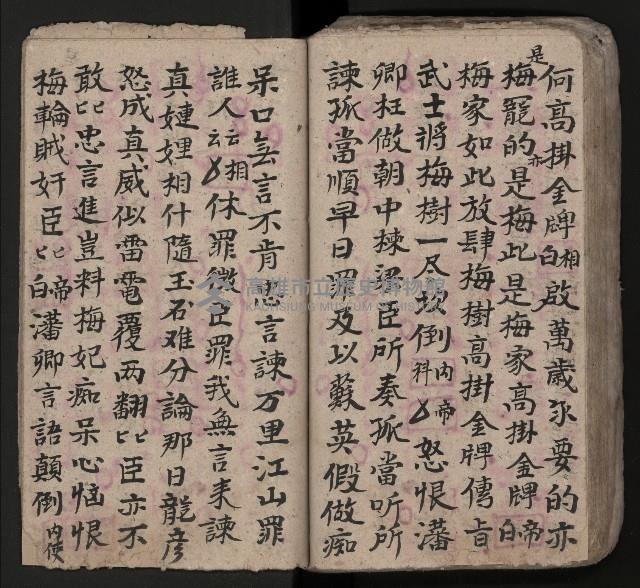 何高掛金牌白相啟萬歲次要的亦
是梅寵的亦是梅此是梅家高掛金牌白帝
梅家如此放肆梅樹高掛金牌傳旨
武士將梅樹一尽坎倒科内帝怒恨潘
卿枉做朝中棟梁臣所奏孤當听所
諫孤當順早日罪及以蘇英假做痴
呆口無言不肯忠言諫万里江山罪
誰人云云相休罪微臣罪我無言来諫
真娌相什隨玉石难分論那日龍彦
怒成真威似雷電覆雨翻匕匕臣亦不
敢匕匕忠言進豈料梅妃痴呆心恼恨
梅輪賊奸臣匕匕白帝潘卿言語顛倒内使
高雄市立歷史博物館
KAOHSIUNG MUSEUM OF HISTORY